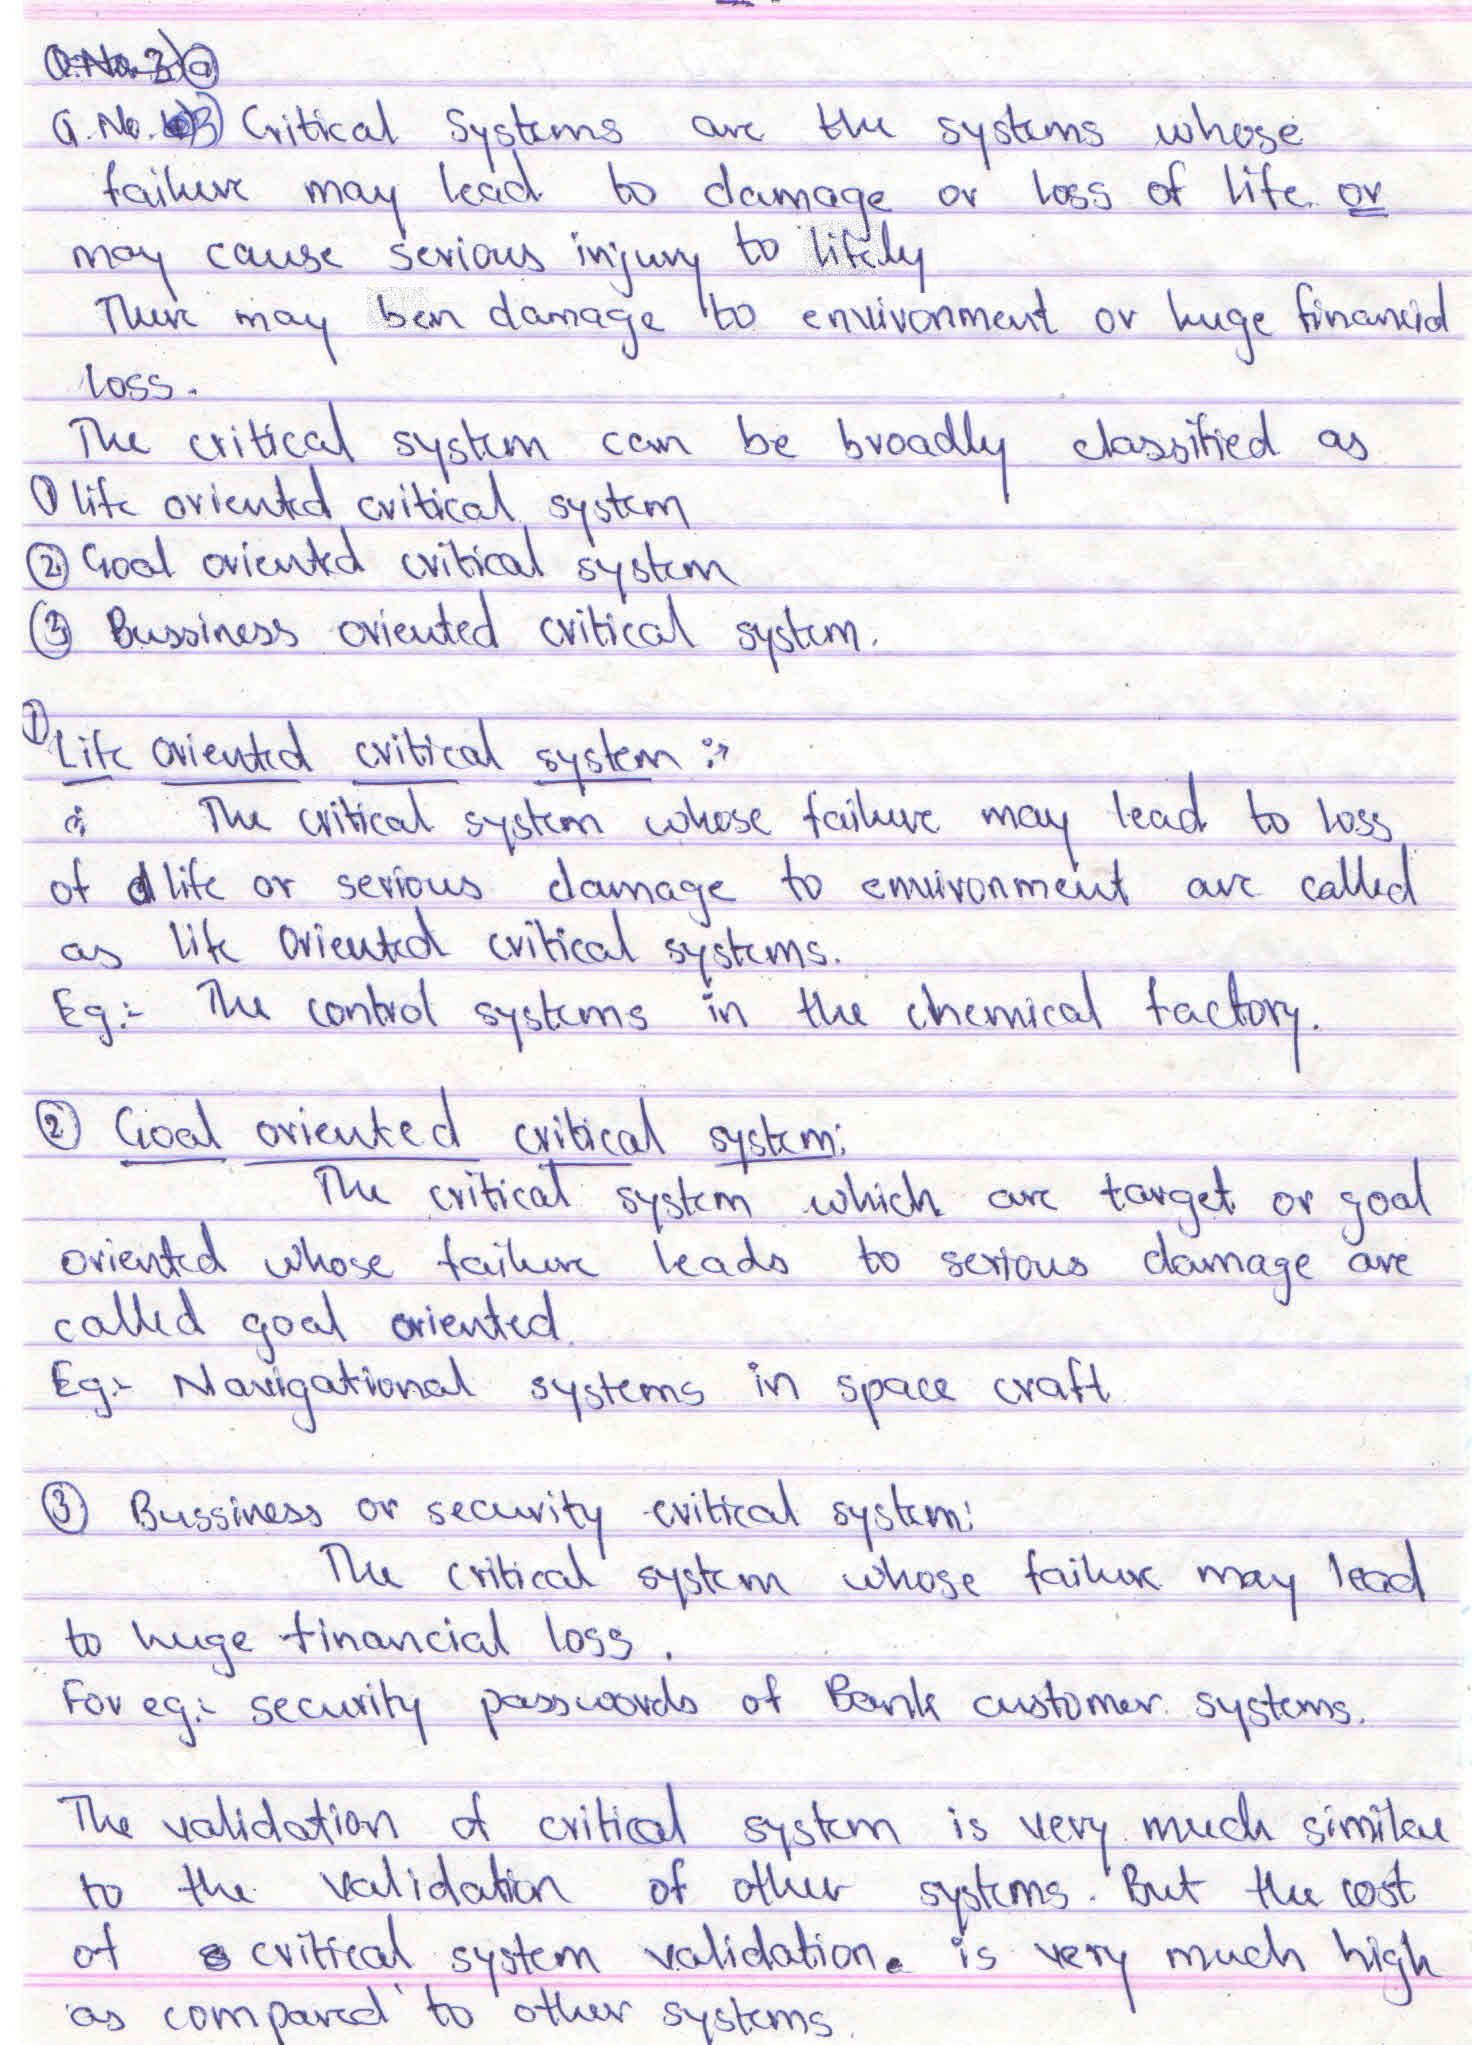 Q.No. 3) a
Q.No. 3) Critical Systems are the systems whose
failure may lead to damage or loss of life. or
may cause serious injury to
There may been damage to environment or huge financial
loss.
The critical system can be broadly classified as
① life oriented critical system
② Goal oriented critical system
③ Bussiness oriented critical system.
① Life oriented critical system :→
The critical system whose failure may lead to loss
of life or serious damage to environment are called
as life oriented critical systems.
Eg:- The control systems in the chemical factory.
② Goal oriented critical system:
The critical system which are target or goal
oriented whose failure leads to serious damage are
called goal oriented
Eg:- Navigational systems in space craft
③ Bussiness or security critical system:
The critical system whose failure may lead
to huge financial loss.
For eg:- security passwords of Bank customer systems.
The validation of critical system is very much similar
to the validation of other systems. But the cost
of critical system validation. is very much high
as compared to other systems.